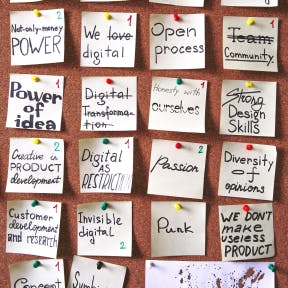 2
Not-only-money
POWER
1
We love
digital
Open
process
1
Team
Community
Power
of
idea
1
Digital
Transforma-
tion
1
Honesty with
ourselves
Strong
Design
Skills
2
Creative in
PRODUCT
development
1
Digital
AS
RESTRICTION
2
Passion
Diversity
of
opinions
1
Customer
development
and research
Invisible
digital
2
Punk
WE DON'T
MAKE
useless
PRODUCT
1
Concept
2